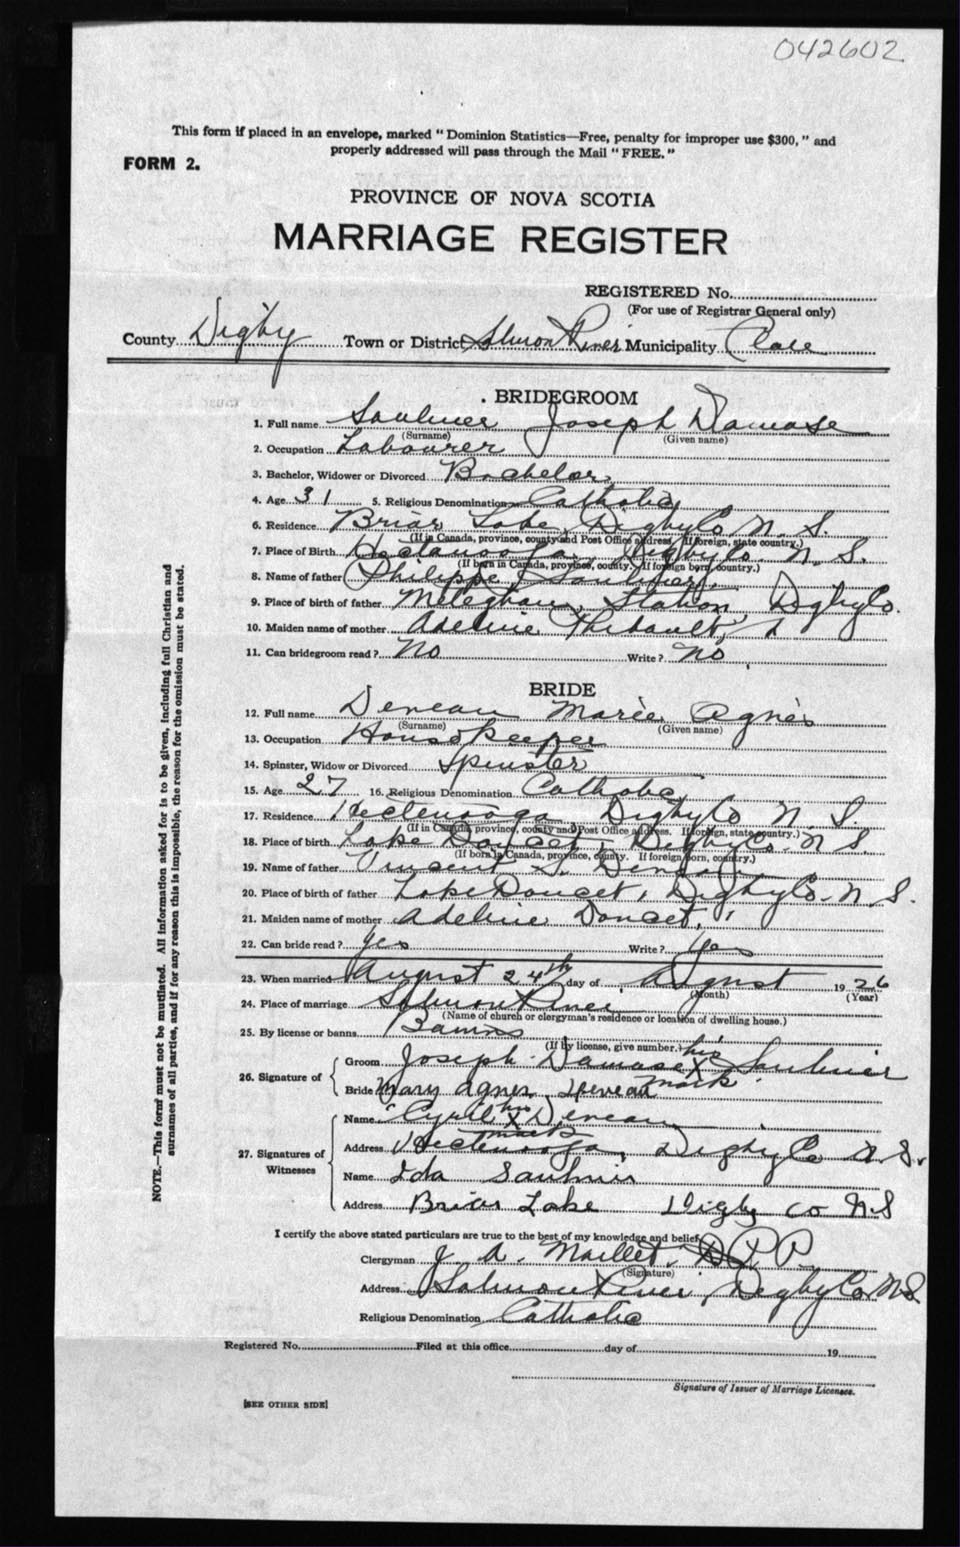 042602
This form if placed in an envelope, marked " Dominion Statistics—Free, penalty for improper use $300, " and
properly addressed will pass through the Mail " FREE. "
FORM 2.
PROVINCE OF NOVA SCOTIA
MARRIAGE REGISTER
REGISTERED No.
(For use of Registrar General only)
County Digby Town or District Salmon River Municipality Clare
BRIDEGROOM
1. Full name Saulnier Joseph Damase
(Surname) (Given name)
2. Occupation Labourer
3. Bachelor, Widower or Divorced Bachelor
4. Age 31 5. Religious Denomination Catholic
6. Residence Briar Lake Digby Co N. S.
(If in Canada, province, county and Post Office address. If foreign, state country.)
7. Place of Birth Hectanooga Digby Co N. S.
(If born in Canada, province, county. If foreign born, country.)
8. Name of father Philippe Saulnier
9. Place of birth of father Meteghan Station Digby Co.
10. Maiden name of mother Adeline Thibault
11. Can bridegroom read ? No Write ? No
BRIDE
12. Full name Deneau Marie Agnès
(Surname) (Given name)
13. Occupation Housekeeper
14. Spinster, Widow or Divorced Spinster
15. Age 27 16. Religious Denomination Catholic
17. Residence Hectenooga Digby Co N S.
(If in Canada, province, county and Post Office address. If foreign, state country.)
18. Place of birth Lake Doucet, Digby Co. N S.
(If born in Canada, province, county. If foreign born, country.)
19. Name of father Vincent Deneau
20. Place of birth of father Lake Doucet, Digby Co. N. S.
21. Maiden name of mother Adeline Doucet
22. Can bride read ? Yes Write ? Yes
23. When married August 24th day of August 1926
(Month) (Year)
24. Place of marriage Salmon River
(Name of church or clergyman's residence or location of dwelling house.)
25. By license or banns Banns
(If by license, give number.)
26. Signature of
Groom Joseph Damase his X mark Saulnier
Bride Mary Agnes Deveau
27. Signatures of Witnesses
Name Cyril his X mark Deneau
Address Hectenooga, Digby Co N. S.
Name Ida Saulnier
Address Briar Lake Digby Co N S
I certify the above stated particulars are true to the best of my knowledge and belief.
Clergyman J. A. Maillet, P. P.
(Signature)
Address Salmon River, Digby Co N S.
Religious Denomination Catholic
Registered No. Filed at this office day of 19
Signature of Issuer of Marriage Licenses.
[SEE OTHER SIDE]
NOTE.—This form must not be mutilated. All information asked for is to be given, including full Christian and
surnames of all parties, and if for any reason this is impossible, the reason for the omission must be stated.